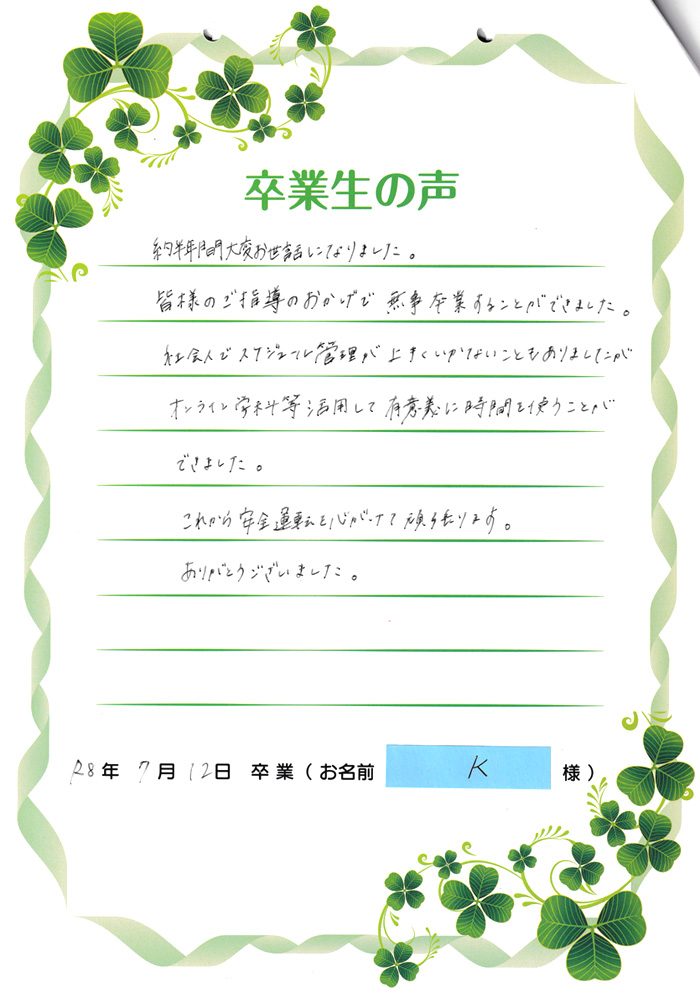 卒業生の声
約半年間大変お世話になりました。
皆様のご指導のおかげで 無事卒業することができました。
社会人でスケジュール管理が上手くいかないこともありましたが
オンライン学科等活用して有意義に時間を使うことが
できました。
これから安全運転を心がけて頑張ります。
ありがとうございました。
R8年 7月 12日 卒業(お名前 K 様)